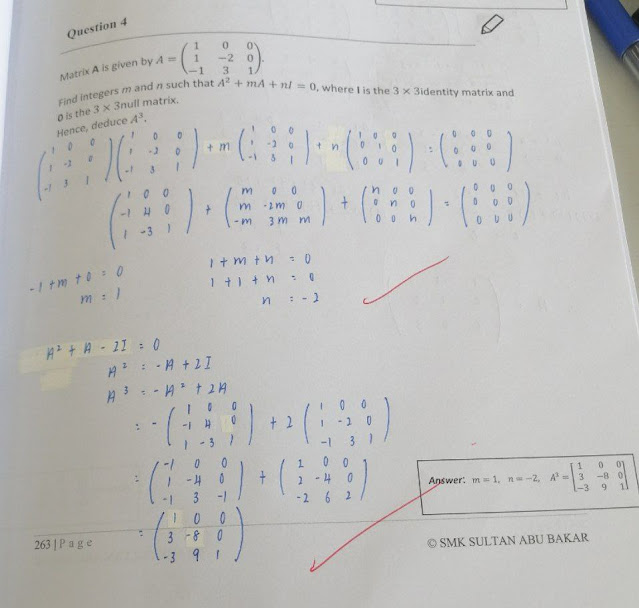 Question 4
Matrix A is given by A = ( 1 0 0 ; 1 -2 0 ; -1 3 1 ).
Find integers m and n such that A² + mA + nI = 0, where I is the 3 × 3identity matrix and
0 is the 3 × 3null matrix.
Hence, deduce A³.
( 1 0 0 ; 1 -2 0 ; -1 3 1 ) ( 1 0 0 ; 1 -2 0 ; -1 3 1 ) + m ( 1 0 0 ; 1 -2 0 ; -1 3 1 ) + n ( 1 0 0 ; 0 1 0 ; 0 0 1 ) = ( 0 0 0 ; 0 0 0 ; 0 0 0 )
( 1 0 0 ; -1 4 0 ; 1 -3 1 ) + ( m 0 0 ; m -2m 0 ; -m 3m m ) + ( n 0 0 ; 0 n 0 ; 0 0 n ) = ( 0 0 0 ; 0 0 0 ; 0 0 0 )
-1 + m + 0 = 0
m = 1
1 + m + n = 0
1 + 1 + n = 0
n = -2
A² + A - 2I = 0
A² = -A + 2I
A³ = -A² + 2A
= - ( 1 0 0 ; -1 4 0 ; 1 -3 1 ) + 2 ( 1 0 0 ; 1 -2 0 ; -1 3 1 )
= ( -1 0 0 ; 1 -4 0 ; -1 3 -1 ) + ( 2 0 0 ; 2 -4 0 ; -2 6 2 )
= ( 1 0 0 ; 3 -8 0 ; -3 9 1 )
Answer: m = 1, n = -2, A³ = [ 1 0 0 ; 3 -8 0 ; -3 9 1 ]
263 | Page
© SMK SULTAN ABU BAKAR